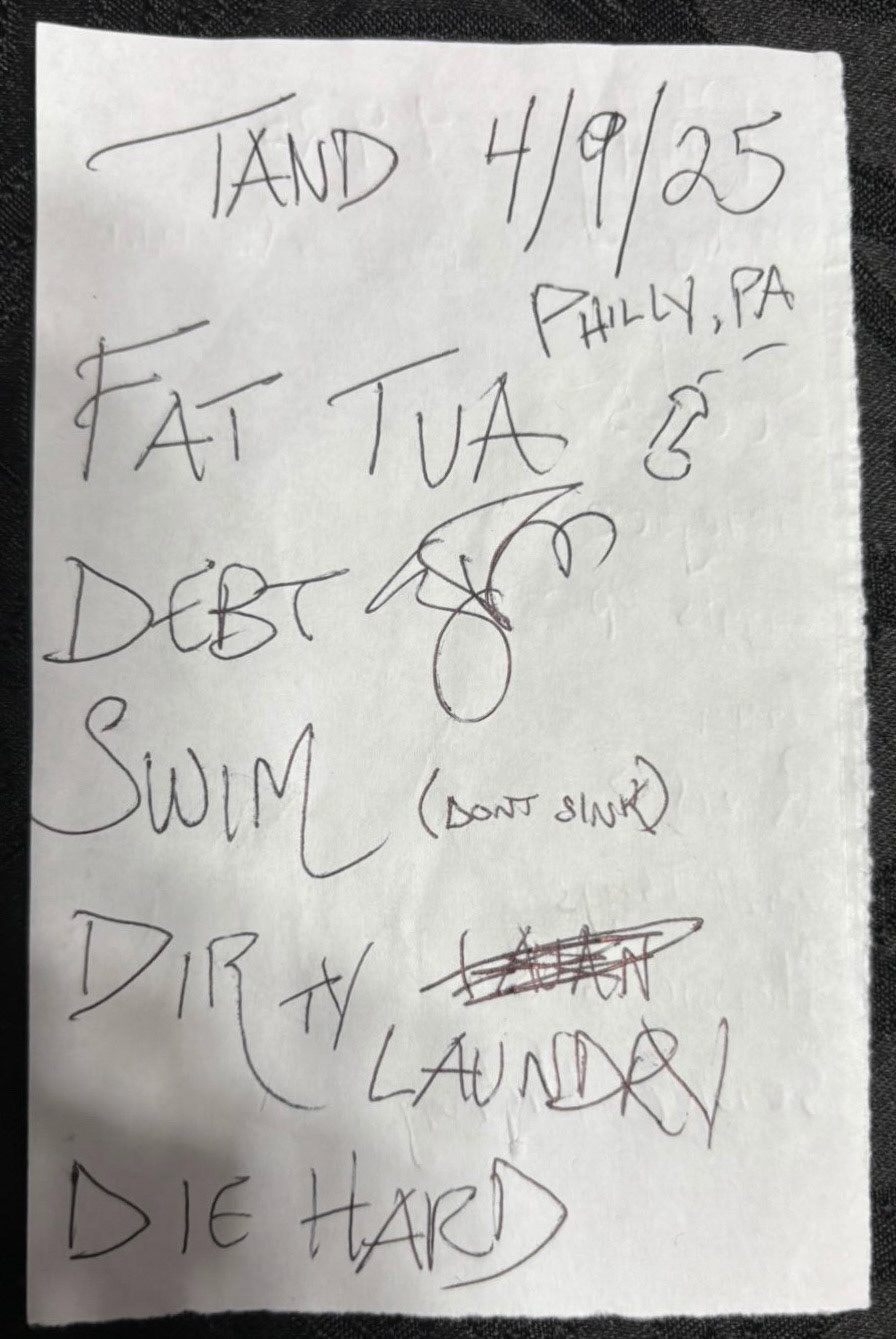 TAND 4/9/25
PHILLY, PA
FAT TUA
DEBT
SWIM (DONT SINK)
DIRTY
LAUNDRY
DIE HARD